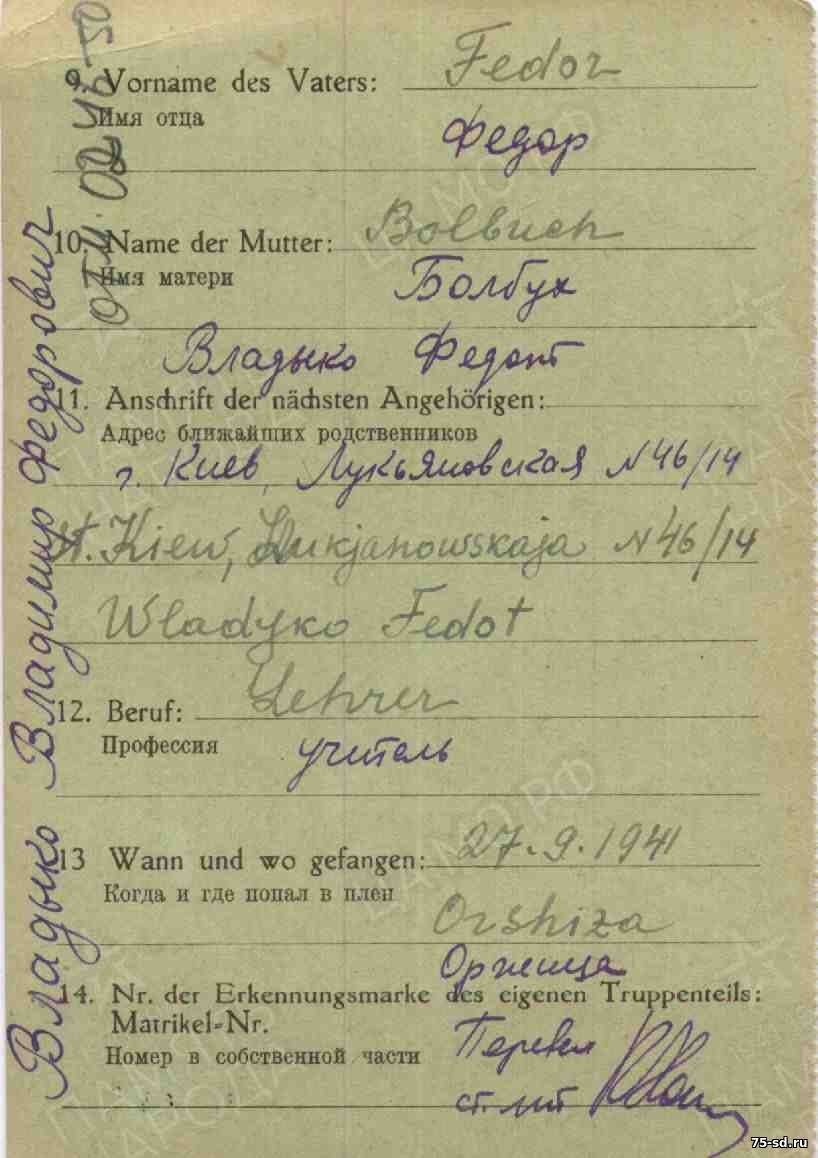 9. Vorname des Vaters: Fedor
Имя отца
Федор
10. Name der Mutter: Bolbuch
Имя матери
Болбух
Владыко Федот
11. Anschrift der nächsten Angehörigen:
Адрес ближайших родственников
г. Киев, Лукьяновская N 46/14
st. Kiew, Lukjanowskaja N 46/14
Wladyko Fedot
12. Beruf: Lehrer
Профессия
учитель
13 Wann und wo gefangen: 27.9.1941
Когда и где попал в плен
Orshiza
Оржица
14. Nr. der Erkennungsmarke des eigenen Truppenteils:
Matrikel-Nr.
Номер в собственной части
Перевел
ст. лит
Владыко Владимир Федорович
75-sd.ru